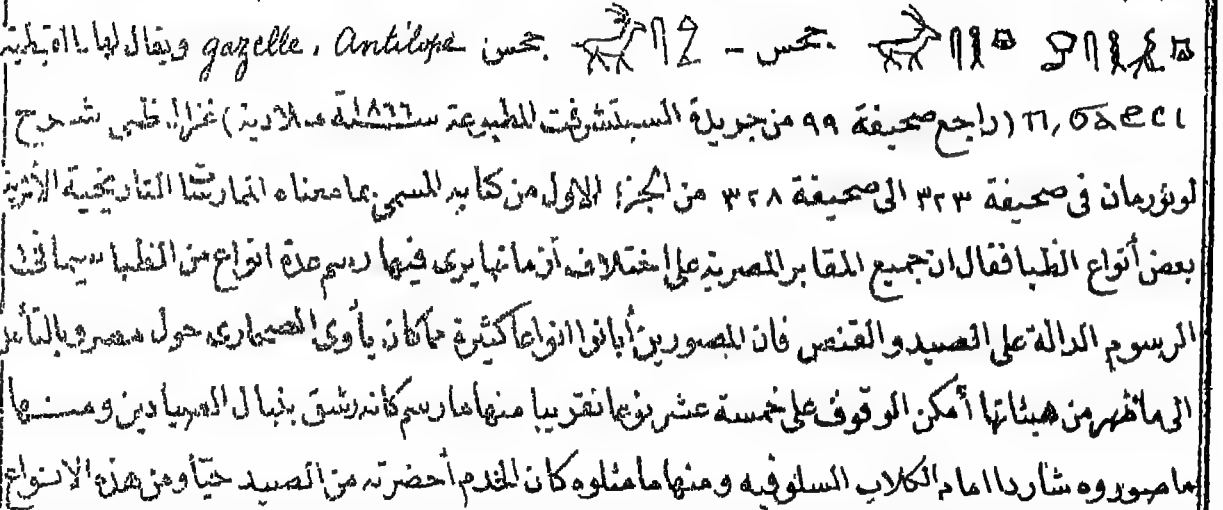 جحس - جحس gazelle, Antilope ويقال لها بالقبطية
π, ϭⲁϩⲥⲓ (راجع صحيفة ٩٩ من جريدة المطبوعة سنة ١٨٦٦ ميلادية) غزال ظبي شرح
لونورمان في صحيفة ٣٢٣ الى صحيفة ٣٢٨ من الجزء الاول من كتابه المسمى بما معناه التاريخية الأثرية
بعض أنواع الظبا فقال ان جميع المقابر المصرية على اختلاف أزمانها يرى فيها رسم عدة انواع من الظبا سيما في
الرسوم الدالة على الصيد والقنص فان المصورين أبانوا انواعا كثيرة مما كان يأوى الصحارى حول مصر وبالتأمل
الى ما ظهر من هيئاتها أمكن الوقوف على خمسة عشر نوعا تقريبا منها ما رسم كانه رشق بنبال الصيادين ومنها
ما صوروه شاردا امام الكلاب السلوقيه ومنها ما مثلوه كان الخدم أحضرته من الصيد حيّا ومن هذه الانواع